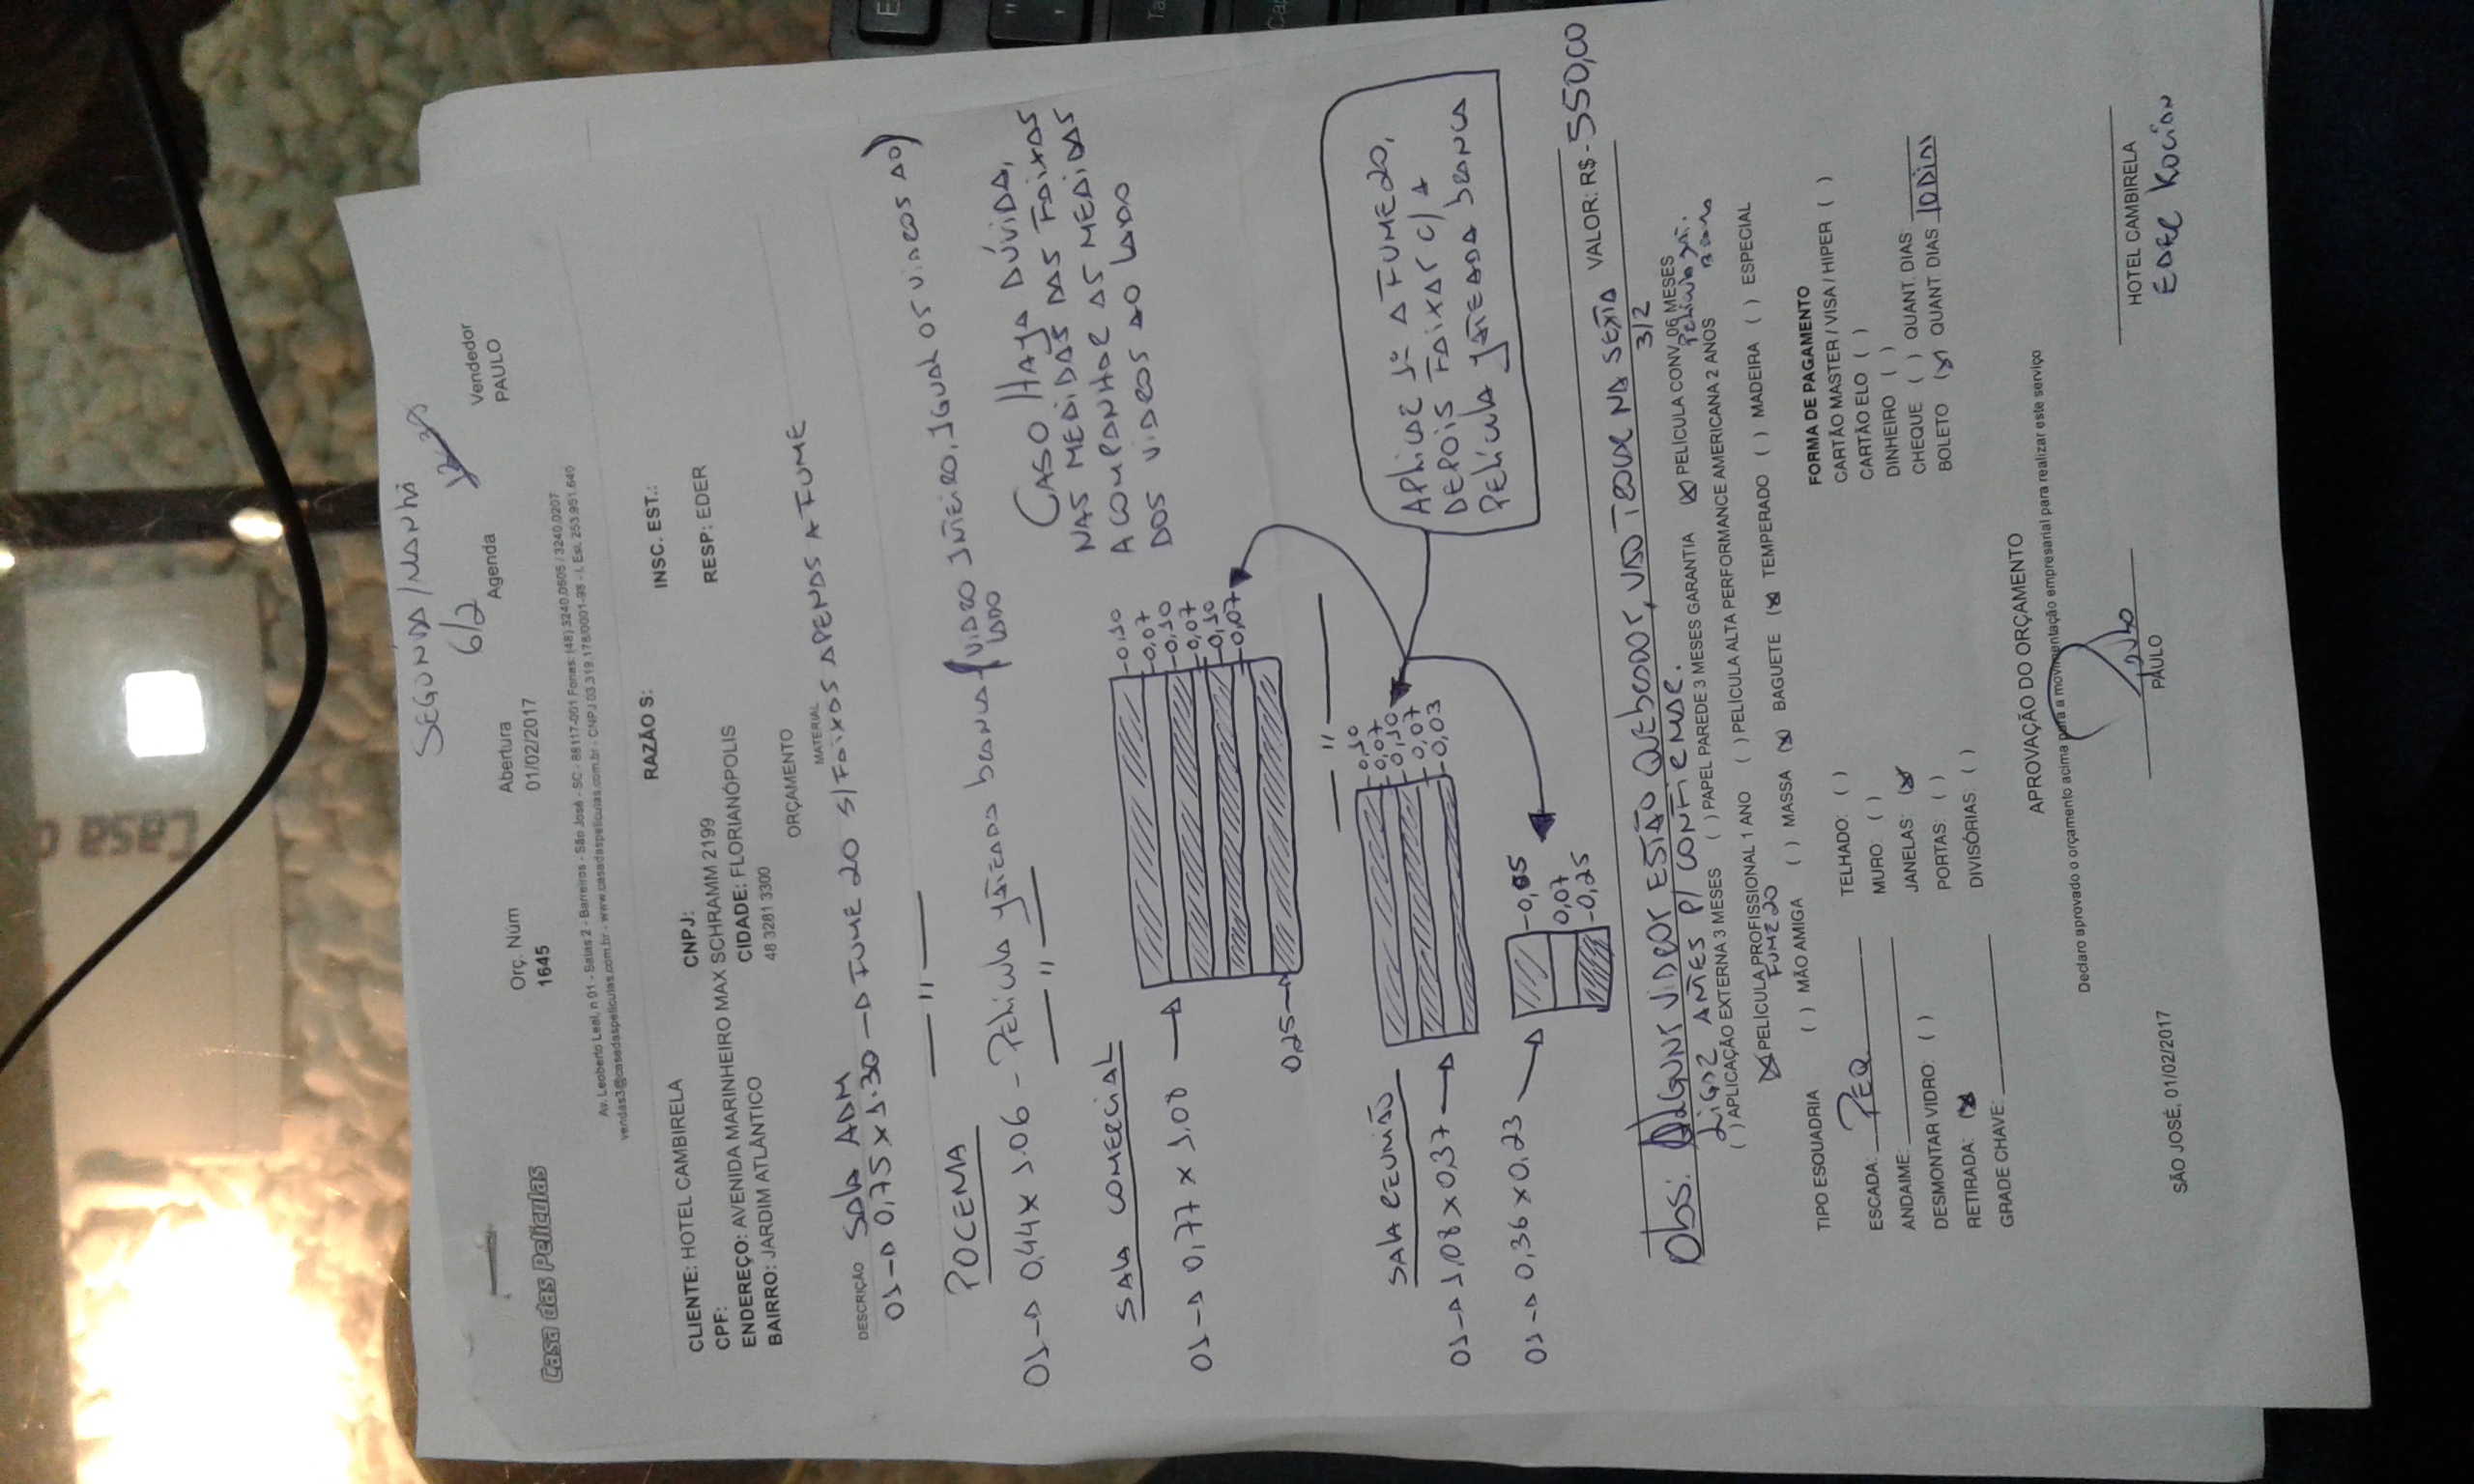 SEGUNDA/MANHÃ
6/2
Casa das Películas
Orç. Núm
1645
Abertura
01/02/2017
Agenda
Vendedor
PAULO
Av. Leoberto Leal, n 01 - Salas 2 - Barreiros - São José - SC - 88117-001 Fones: (48) 3240.0605 / 3240.0207
vendas3@casadaspeliculas.com.br - www.casadaspeliculas.com.br - CNPJ 03.319.178/0001-99 - I. Est. 253.951.640
RAZÃO S:
INSC. EST.:
CLIENTE: HOTEL CAMBIRELA
CNPJ:
RESP: EDER
CPF:
ENDEREÇO: AVENIDA MARINHEIRO MAX SCHRAMM 2199
BAIRRO: JARDIM ATLÂNTICO
CIDADE: FLORIANÓPOLIS
48 3281 3300
ORÇAMENTO
MATERIAL
DESCRIÇÃO
SALA ADM
01 → 0,75 x 1.30 → FUME 20 S/FAIXAS APENAS A FUME
— " —
POCEMA
01 → 0,44 x 1.06 - Película JATEADA BRANCA (VIDRO INTEIRO, IGUAL OS VIDROS AO LADO)
— " —
SALA COMERCIAL
01 → 0,77 x 1,08 →
-0,10
-0,07
-0,10
-0,07
-0,10
-0,07
0,25 →
CASO HAJA DÚVIDA,
NAS MEDIDAS DAS FAIXAS
ACOMPANHAR AS MEDIDAS
DOS VIDROS AO LADO
— " —
SALA REUNIÃO
01 → 1,08 x 0,37 →
-0,10
-0,07
-0,10
-0,07
-0,03
APLICAR 1º A FUME 20,
DEPOIS FAIXAS C/ A
PELÍCULA JATEADA BRANCA
01 → 0,36 x 0,23 →
-0,05
0,07
-0,25
Obs: ALGUNS VIDROS ESTÃO QUEBRADOS, VÃO TROCAR NA SEXTA 3/2
VALOR: R$ - 550,00
LIGAR ANTES P/ CONFIRMAR.
( ) APLICAÇÃO EXTERNA 3 MESES ( ) PAPEL PAREDE 3 MESES GARANTIA (X) PELÍCULA CONV. 06 MESES
Película Jat. Branca
(X) PELÍCULA PROFISSIONAL 1 ANO ( ) PELÍCULA ALTA PERFORMANCE AMERICANA 2 ANOS
FUME 20
TIPO ESQUADRIA ( ) MÃO AMIGA ( ) MASSA (X) BAGUETE (X) TEMPERADO ( ) MADEIRA ( ) ESPECIAL
ESCADA: PEQ
ANDAIME:
DESMONTAR VIDRO: ( )
RETIRADA: (X)
GRADE CHAVE:
TELHADO: ( )
MURO: ( )
JANELAS: (X)
PORTAS: ( )
DIVISÓRIAS: ( )
FORMA DE PAGAMENTO
CARTÃO MASTER / VISA / HIPER ( )
CARTÃO ELO ( )
DINHEIRO ( )
CHEQUE ( ) QUANT. DIAS:
BOLETO (X) QUANT. DIAS 10 DIAS
APROVAÇÃO DO ORÇAMENTO
Declaro aprovado o orçamento acima para a movimentação empresarial para realizar este serviço
SÃO JOSÉ, 01/02/2017
Paulo
PAULO
HOTEL CAMBIRELA
EDER KOCIAN